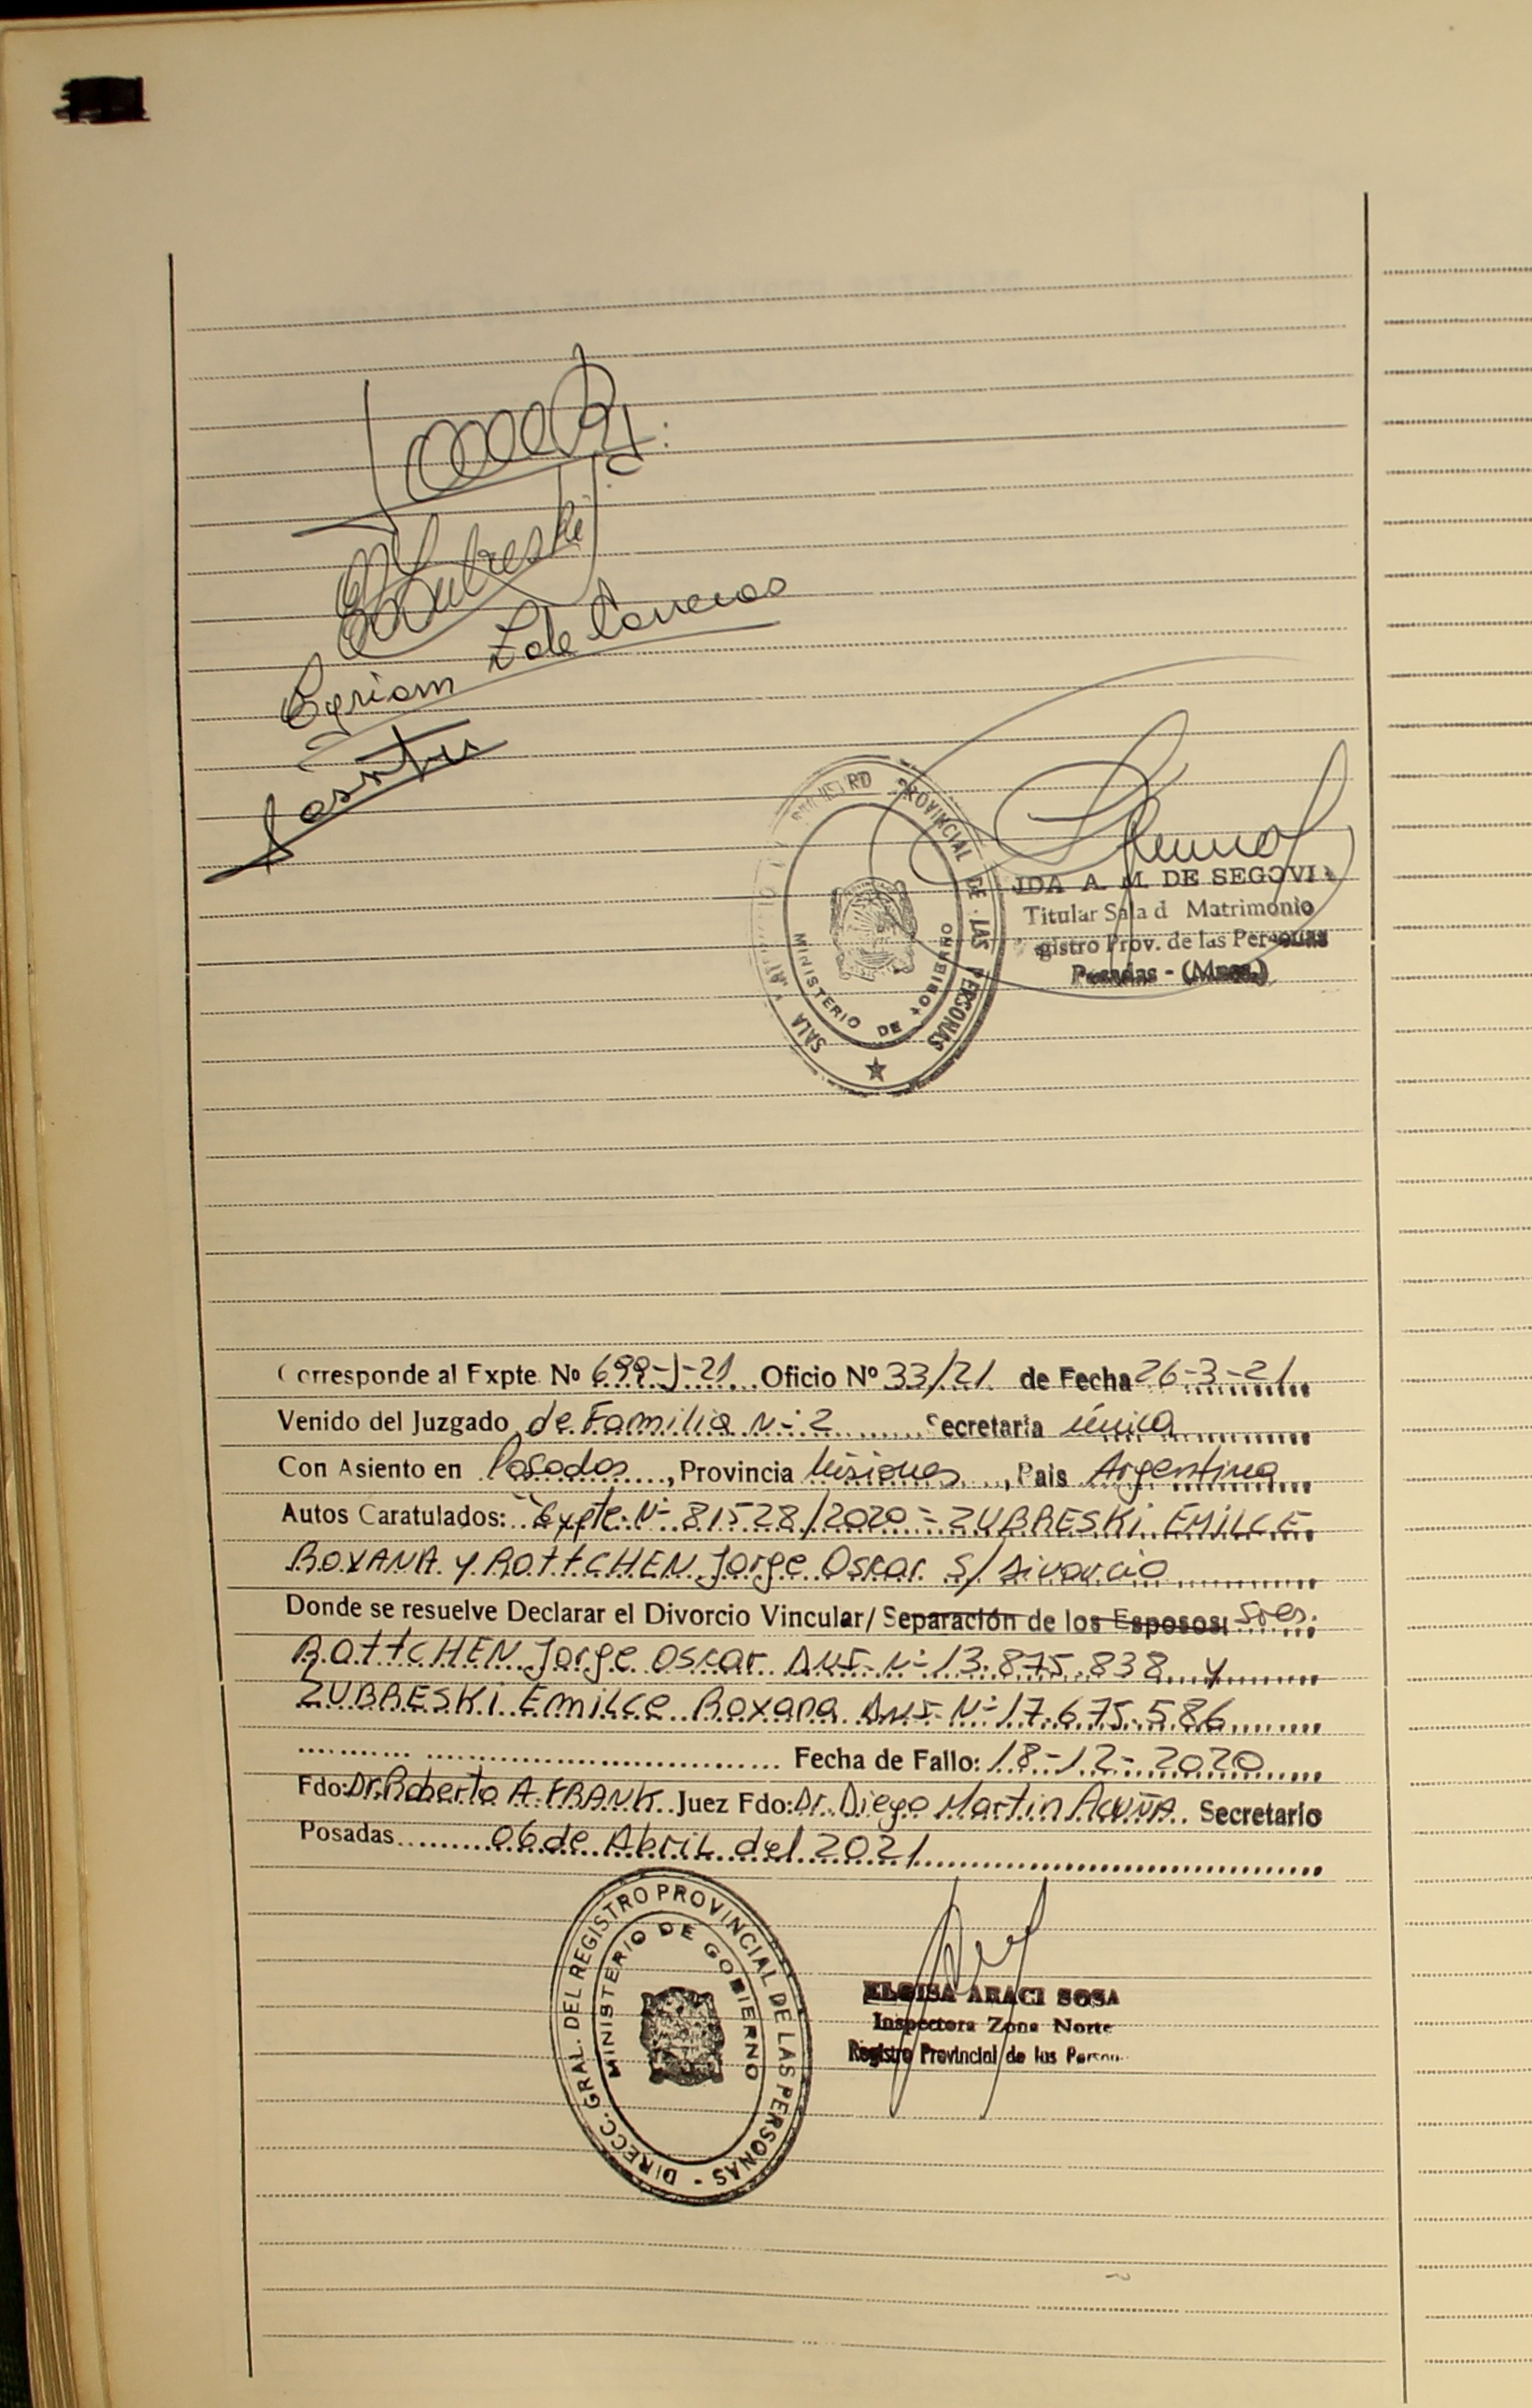 Zubreski
Z de Carreras
REGISTRO PROVINCIAL DE LAS PERSONAS
SALA
MINISTERIO DE GOBIERNO
IDA A. M. DE SEGOVI
Titular Sala d Matrimonio
gistro Prov. de las Personas
Posadas - (Mnes.)
Corresponde al Expte. Nº 699-J-21 Oficio Nº 33/21 de Fecha 26-3-21
Venido del Juzgado de Familia Nº 2 Secretaria única
Con Asiento en Posadas, Provincia Misiones, Pais Argentina
Autos Caratulados: "Expte. Nº 81528/2020 = ZUBRESKi EMiLCE
ROXANA y ROttCHEN Jorge Oscar S/ Divorcio
Donde se resuelve Declarar el Divorcio Vincular/ Separación de los Esposos: Sres.
ROttCHEN Jorge Oscar DNI-Nº 13.875.838 y
ZUBRESKi Emilce Roxana DNI-Nº 17.675.586
Fecha de Fallo: 18-12-2020
Fdo: Dr. Roberto A. FRANK Juez Fdo: Dr. Diego Martin AcuñA. Secretario
Posadas 06 de Abril del 2021
DIRECC. GRAL. DEL REGISTRO PROVINCIAL DE LAS PERSONAS -
MINISTERIO DE GOBIERNO
ELOISA ARACI SOSA
Inspectora Zona Norte
Registro Provincial de las Person